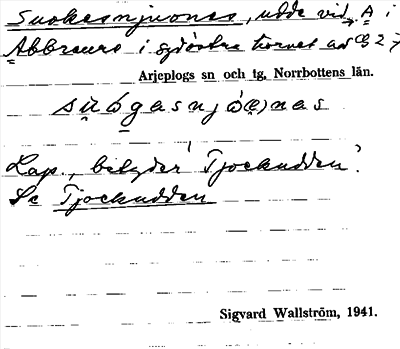 Suokesnjuones, udde vid A i
Abbraure i sydöstra hornet av
Arjeplogs sn och tg, Norrbottens län.
Lap., betyder 'Tjockudden'.
Se Tjockudden
Sigvard Wallström, 1941.